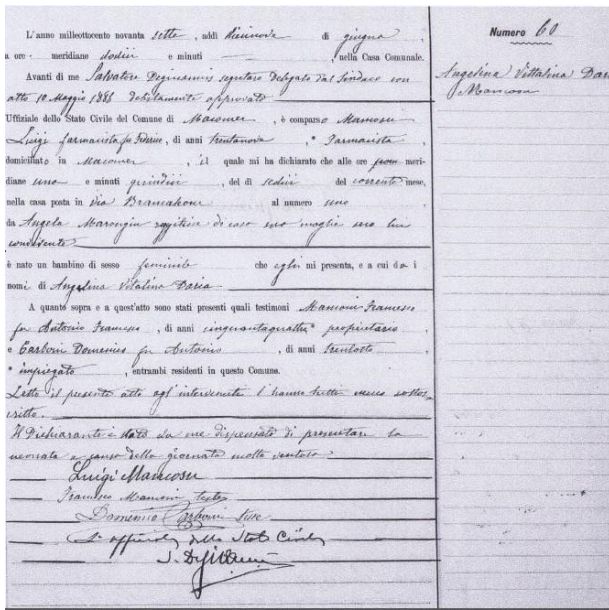 Numero 60
Angelina Vittalina Daria
Mancosu
L'anno milleottocento novanta sette, addì diecinove di giugno,
a ore meridiane dodici e minuti , nella Casa Comunale.
Avanti di me Salvatore Deginannis segretario Delegato dal Sindaco con
atto 10 Maggio 1886 debitamente approvato
Uffiziale dello Stato Civile del Comune di Macomer, è comparso Mancosu
Luigi farmacista fu Federico, di anni trentanove, Farmacista
domiciliato in Macomer, il quale mi ha dichiarato che alle ore pom meri-
diane una e minuti quindici, del dì sedici del corrente mese,
nella casa posta in via al numero uno
da Angela Marongiu di casa sua moglie seco lui
convivente
è nato un bambino di sesso feminile che egli mi presenta, e a cui dà i
nomi di Angelina Vitalina Daria
A quanto sopra e a quest'atto sono stati presenti quali testimoni Manconi Francesco
fu Antonio Francesco, di anni cinquantaquattro proprietario,
e Carboni Domenico fu Antonio, di anni trentotto
impiegato, entrambi residenti in questo Comune.
Letto il presente atto agl'intervenuti l'hanno tutti meco sottos-
critto.
Il Dichiarante è stato da me dispensato di presentare la
neonata a causa della giornata molto ventosa
Luigi Mancosu
Francesco Manconi teste
Domenico Carboni teste
L'officiale dello Stato Civile